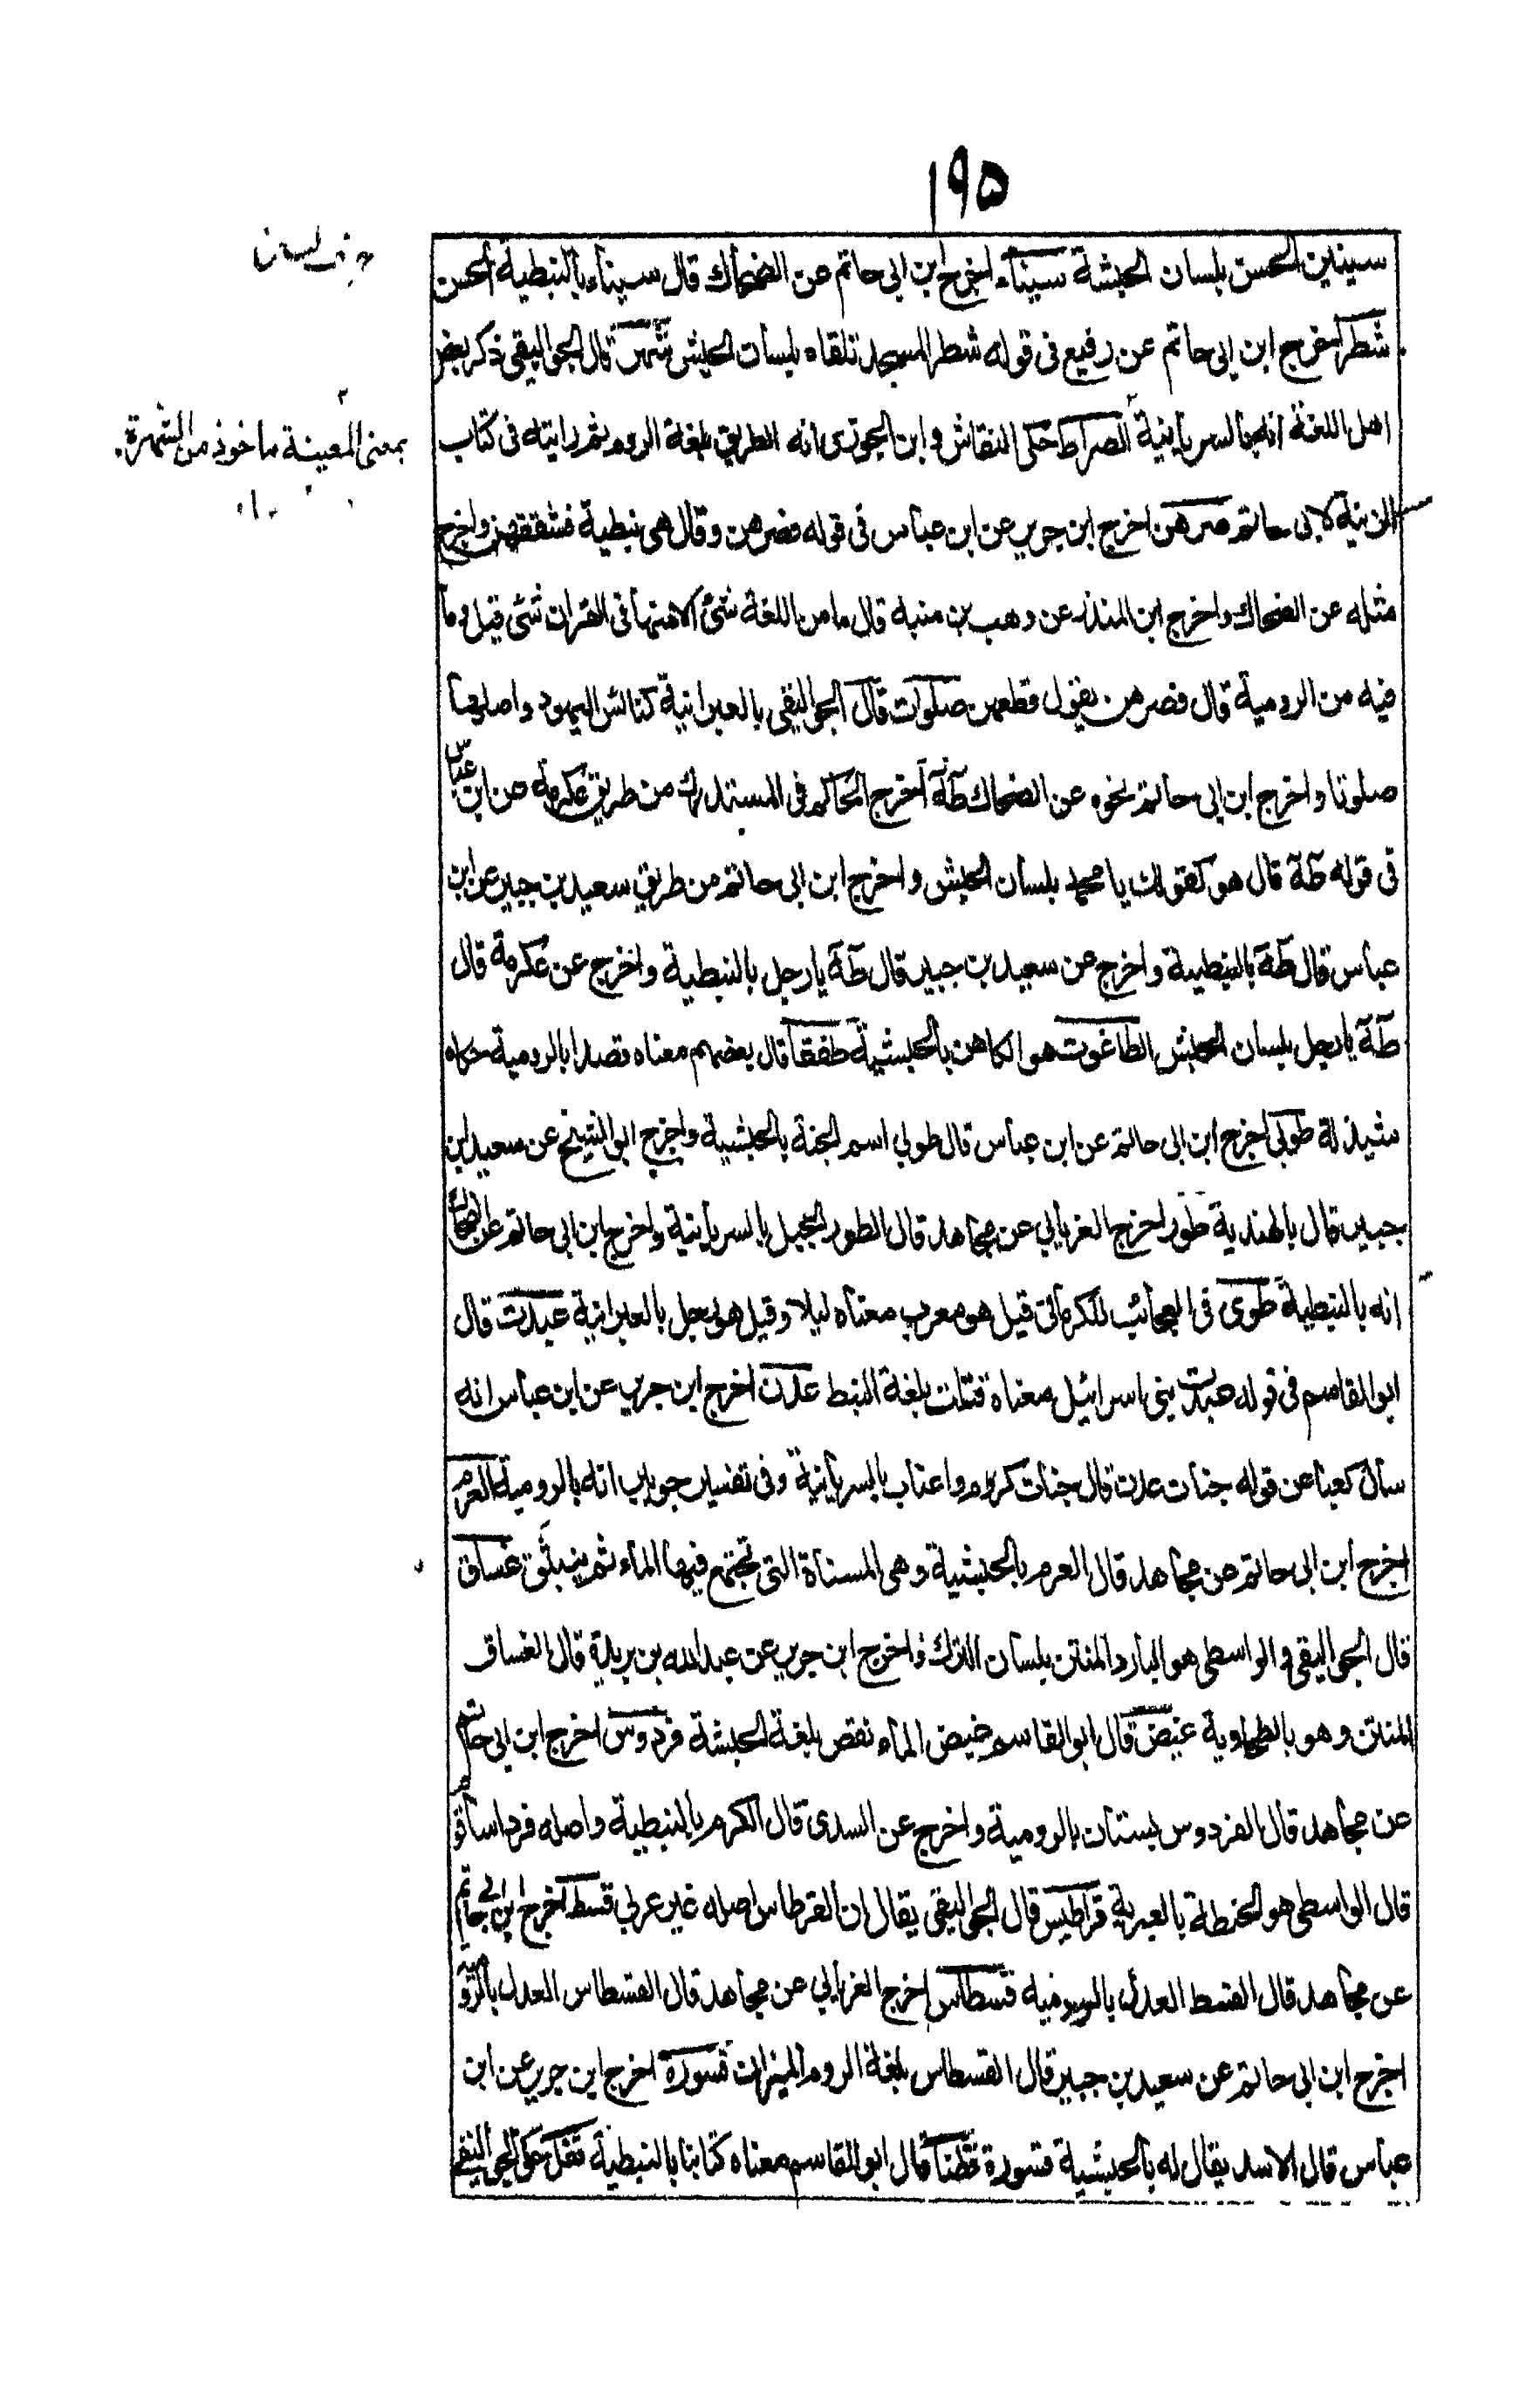 ١٩٥
سينين الحسن بلسان الحبشة سيناء اخرج ابن ابى حاتم عن الضحاك قال سيناء بالنبطية الحسن
شطر اخرج ابن ابى حاتم عن رفيع فى قوله شطر المسجد تلقاه بلسان الحبش شهر قال الجواليقى ذكر بعض
اهل اللغة انه بالسريانية الصراط حكى النقاش و ابن الجوزى انه الطريق بلغة الروم ثم رايته فى كتاب
بمعنى المعينة ماخوذ من الشهرة
الزينة لابى حاتم صرهن اخرج ابن جرير عن ابن عباس فى قوله فصرهن وقال هى نبطية فشققهن واخرج
مثله عن الضحاك واخرج ابن المنذر عن وهب بن منبه قال ما من اللغة شئ الا منها فى القران شئ قيل وما
فيه من الرومية قال فصرهن يقول قطعهن صلوات قال الجواليقى بالعبرانية كنائس اليهود واصلها
صلوتا واخرج ابن ابى حاتم نحوه عن الضحاك طه اخرج الحاكم فى المستدرك من طريق عكرمة عن ابن عباس
فى قوله طه قال هو كقولك يا محمد بلسان الحبش واخرج ابن ابى حاتم من طريق سعيد بن جبير عن ابن
عباس قال طه بالنبطية واخرج عن سعيد بن جبير قال طه يا رجل بالنبطية واخرج عن عكرمة قال
طه يا رجل بلسان الحبش الطاغوت هو الكاهن بالحبشية طفقا قال بعضهم معناه قصدا بالرومية حكاه
شيذلة طوبى اخرج ابن ابى حاتم عن ابن عباس قال طوبى اسم الجنة بالحبشية واخرج ابو الشيخ عن سعيد ابن
جبير قال بالهندية طور اخرج الفريابي عن مجاهد قال الطور الجبل بالسريانية واخرج ابن ابى حاتم عن الضحاك
انه بالنبطية طوى فى العجائب للكرمانى قيل هو معرب معناه ليلا وقيل هو رجل بالعبرانية عبدت قال
ابو القاسم فى قوله عبدت بنى اسرائيل معناه قتلت بلغة النبط عدن اخرج ابن جرير عن ابن عباس انه
سال كعبا عن قوله جنات عدن قال جنات كروم واعناب بالسريانية وفى تفسير جويبر انه بالرومية العرم
اخرج ابن ابى حاتم عن مجاهد قال العرم بالحبشية وهى المسناة التى تجتمع فيها الماء ثم ينبثق غساق
قال الجواليقى و الواسطى هو البارد المنتن بلسان الترك واخرج ابن جرير عن عبد الله بن بريدة قال الغساق
المنتن وهو بالطحاوية غيض قال ابو القاسم غيض الماء نقص بلغة الحبشة فردوس اخرج ابن ابى حاتم
عن مجاهد قال الفردوس بستان بالرومية واخرج عن السدى قال الكرم بالنبطية واصله فرداسا فو
قال الواسطى هو الحنطة بالعبرية قراطيس قال الجواليقى يقال ان القرطاس اصله غير عربي قسط اخرج ابن ابى حاتم
عن مجاهد قال القسط العدل بالرومية قسطاس اخرج الفريابي عن مجاهد قال القسطاس العدل بالرومية
اخرج ابن ابى حاتم عن سعيد بن جبير قال القسطاس بلغة الروم الميزان قسورة اخرج ابن جرير عن ابن
عباس قال الاسد يقال له بالحبشية قسورة قطنا قال ابو القاسم معناه كتابنا بالنبطية قفل حكى الجواليقى